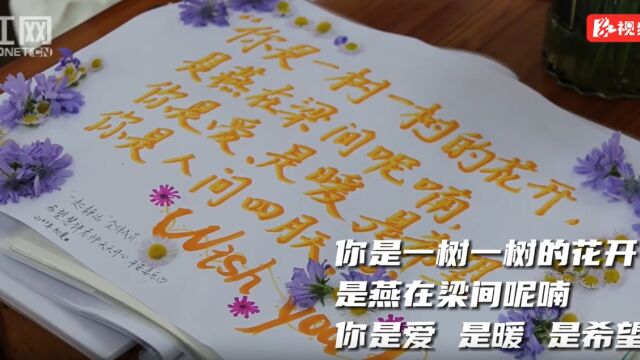 红网
DNET.CN
视
"你是一树一树的花开,
是燕在梁间呢喃,
你是爱、是暖,是希望
你是人间四月天
Wish you
你是一树一树的花开
是燕在梁间呢喃
你是爱 是暖 是希望